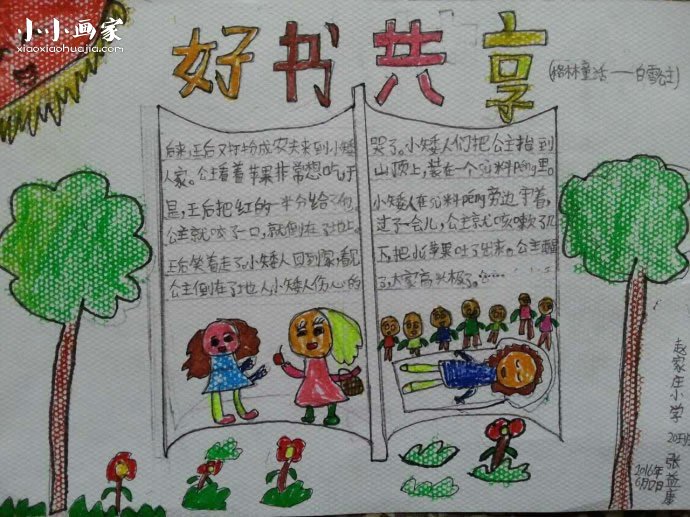 小小画家
xiaoxiaohuajia.com
好书共享
(格林童话——白雪公主)
后来王后又打扮成农夫来到小矮
人家。公主看着苹果非常想吃,于
是,王后把红的一半分给了她。
公主就咬了一口,就倒在了地上。
王后笑着走了。小矮人回到家,看见
公主倒在了地上,小矮人伤心的
哭了。小矮人们把公主抬到
山顶上,装在一个
小矮人在
过了一会儿,公主就咳嗽了几
下,把
苹果吐了出来。公主醒
了,大家高兴极了。……
赵家庄小学
张益
2016年
6月